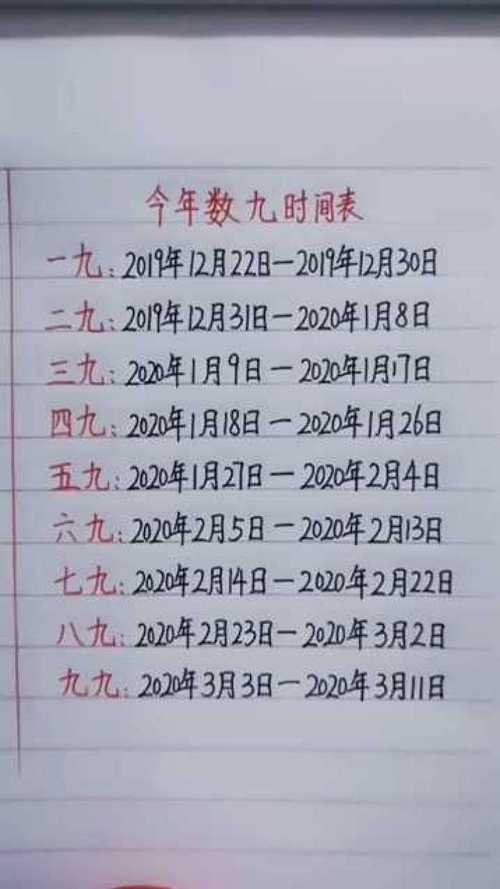 今年数九时间表
一九:2019年12月22日—2019年12月30日
二九:2019年12月31日—2020年1月8日
三九:2020年1月9日—2020年1月17日
四九:2020年1月18日—2020年1月26日
五九:2020年1月27日—2020年2月4日
六九:2020年2月5日—2020年2月13日
七九:2020年2月14日—2020年2月22日
八九:2020年2月23日—2020年3月2日
九九:2020年3月3日—2020年3月11日